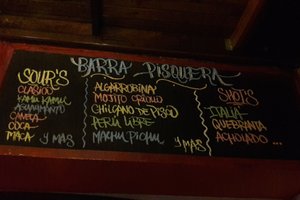 BARRA PISQUERA
SOUR'S
CLASICO
KAMU KAMU
AGUAYMANTO
CANELA
COCA
MACA Y MAS
ALGARROBINA
MOJITO CRIOLLO
CHILCANO DE PISCO
PERÚ LIBRE
MACHU PICHU
Y MAS
SHOTS
ITALIA
QUEBRANTA
ACHOLADO ...